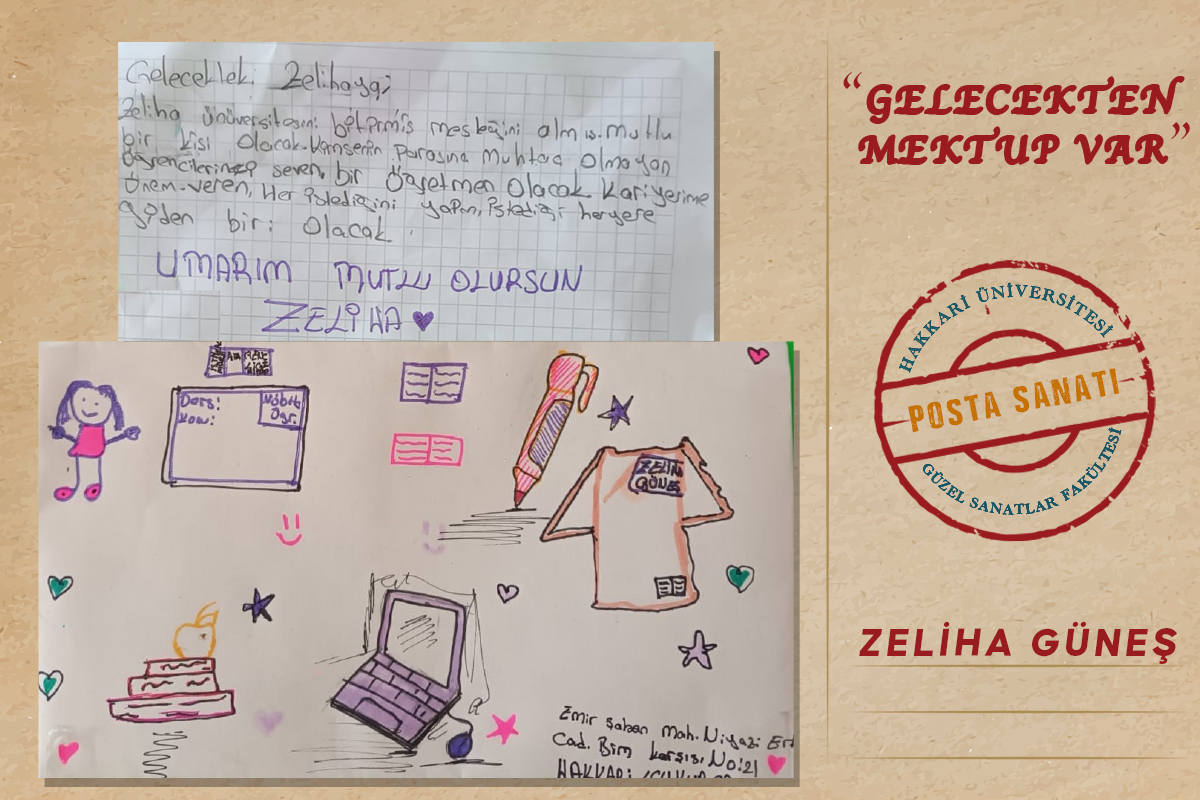 Gelecekteki Zelihaya;
Zeliha Ünüversitesini bitirmiş mesleğini almış. mutlu
bir kişi Olacak. kimsenin parasına muhtac Olmayan
Öğrencilerini seven, bir Öğretmen Olacak kariyerime
Önem veren, Her istediğini yapan, istediği heryere
giden biri Olacak.
UMARIM MUTLU OLURSUN
ZELİHA
Ders:
Konu:
Nöbetçi
Öğr.
ZELİH
GÜNEŞ
Emir Şaban Mah. Niyazi Er
Cad. Bim karşısı No:21
HAKKARİ
“GELECEKTEN
MEKTUP VAR”
HAKKARİ ÜNİVERSİTESİ
POSTA SANATI
GÜZEL SANATLAR FAKÜLTESİ
ZELİHA GÜNEŞ